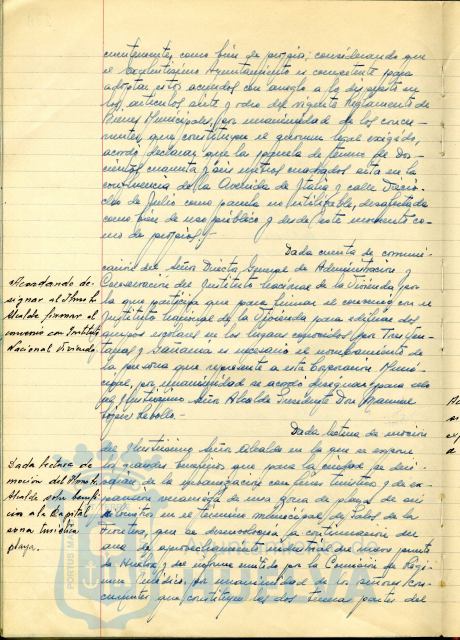 como bien de propios; considerando que
el Excelentísimo Ayuntamiento es competente para
adoptar estos acuerdos con arreglo a lo dispuesto en
los artículos siete y ocho del vigente Reglamento de
Bienes Municipales, por unanimidad de los concu-
rrentes, que constituyen el quorum legal exigido,
acordó declarar que la parcela de terreno de dos-
cientos cuarenta y seis metros cuadrados sita en la
confluencia de la Avenida de Italia y calle Diecio-
cho de Julio como parcela no utilizable, desafectada
como bien de uso público y desde este momento co-
mo de propios.-
Dada cuenta de comuni-
cación del Señor Director General de Administración y
Conservación del Instituto Nacional de la Vivienda por
la que participa que para firmar el convenio con el
Instituto Nacional de la Vivienda para edificar dos
grupos escolares en los lugares conocidos por Tres Ven-
tanas y es necesario el nombramiento de
la persona que represente a esta Corporación Muni-
cipal, por unanimidad se acordó designar para ello
al Ilustrísimo Señor Alcalde Presidente Don Manuel
López Rebollo.-
Dada lectura de moción
del Ilustrísimo Señor Alcalde en la que se expone
los grandes que para la ciudad se deri-
varían de la urbanización con fines turísticos y de ex-
pansión veraniega de una zona de playa de seis
kilómetros en el término municipal de Palos de la
Frontera, que se desenvolvería a continuación del
area de aprovechamiento industrial del nuevo puerto
de Huelva y del informe emitido por la Comisión de Régi-
men Jurídico, por unanimidad de los señores con-
currentes que constituyen las dos terceras partes del
Acordando de-
signar al Iltmo Sr.
Alcalde firmar el
convenio con Instituto
Nacional Vivienda
Dada lectura de
moción del Iltmo Sr.
Alcalde sobre benefi-
cios a la Capital
zona turística
playa.